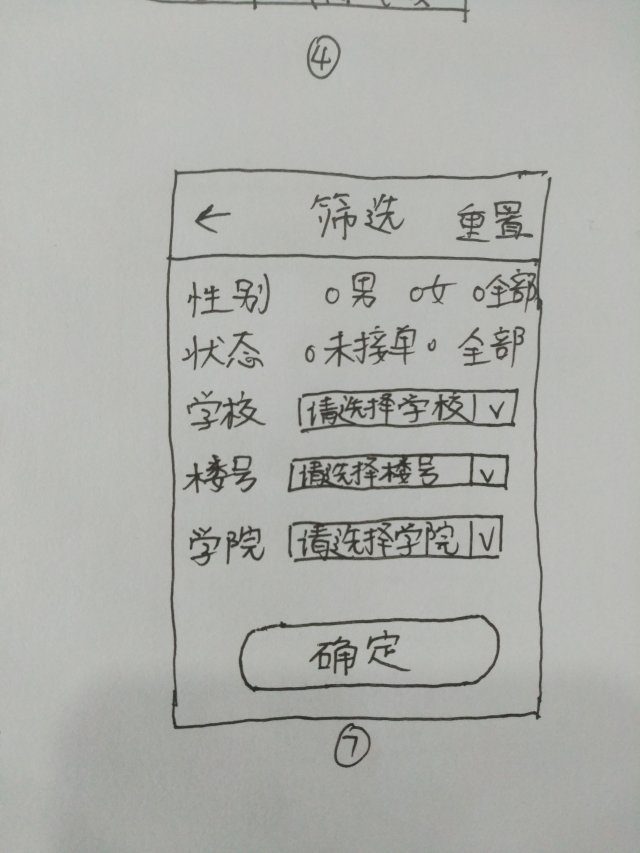 ④
← 筛选 重置
性别 ○男 ○女 ○全部
状态 ○未接单 ○全部
学校 请选择学校 ∨
楼号 请选择楼号 ∨
学院 请选择学院 ∨
确定
⑦